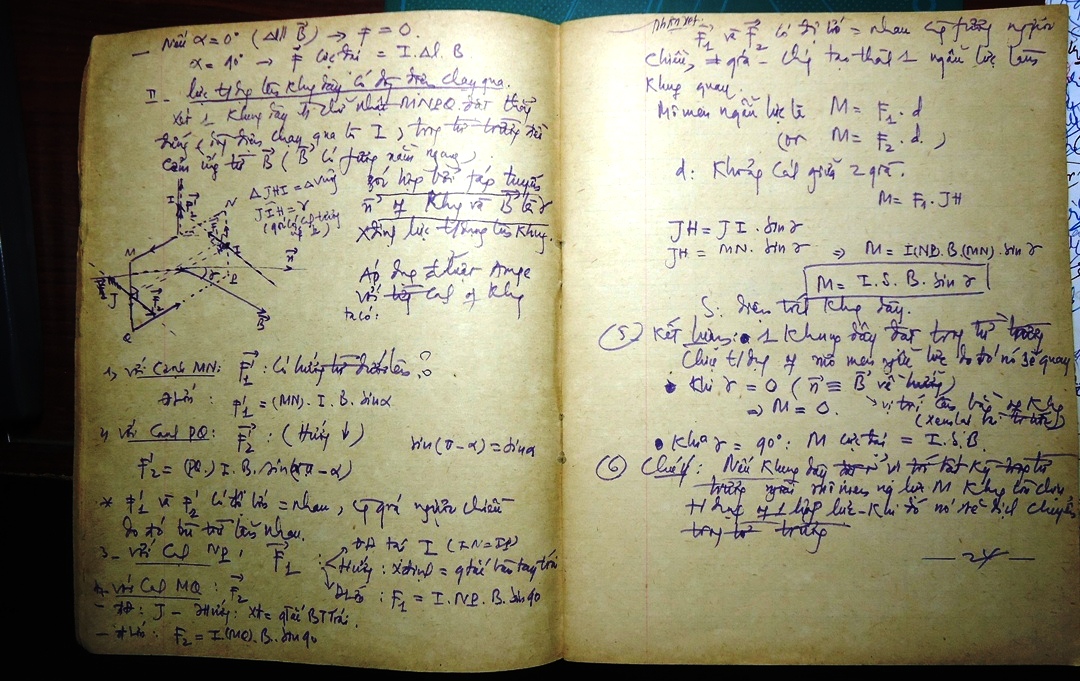 — Nếu α = 0° (Δl // B⃗) → F = 0.
α = 90° → F⃗ cực đại = I.Δl.B
II - Lực t/dụng lên khung dây có dòng điện chạy qua.
Xét 1 khung dây h chữ nhật MNPQ đặt thẳng
đứng, dòng điện chạy qua là I, trong từ trường đều
cảm ứng từ B⃗ (B⃗ có phương nằm ngang),
ΔJHI = Δ vuông
JIH = γ
I
N
M
J
H
P
Q
n⃗
γ
B⃗
F⃗2
góc hợp bởi pháp tuyến
n⃗ of khung và B⃗ là γ
Xđịnh lực t/dụng lên khung.
Áp dụng đ luật Ampe
với cạnh of khung
ta có:
1, với cạnh MN: F⃗'1 : Có hướng
Độ lớn : F'1 = (MN). I. B. sinα
2, với cạnh PQ: F⃗'2 : (Hướng ↓)
sin(π - α) = sinα
F'2 = (PQ) I. B. sin(π - α)
* F'1 và F'2 có độ lớn = nhau, ngược chiều
do đó bù trừ lẫn nhau.
3 - với cạnh NP: F⃗1 : Đặt tại I (IN = IP)
Hướng : xđịnh = qtắc bàn tay trái
Độ lớn : F1 = I. NP. B. sin90
4 - với cạnh MQ: F⃗2
- Đặt: J - Hướng: xđ = qtắc BT Trái.
- Độ lớn : F2 = I(MQ). B. sin90
Nhận xét: F⃗1 và F⃗2 có độ lớn = nhau cùng phương ngược
chiều, ≠ giá - chúng tạo thành 1 ngẫu lực làm
khung quay.
Mô men ngẫu lực là M = F1. d
(or M = F2. d.)
d: Khoảng cách giữa 2 giá.
M = F1. JH
JH = JI. sinγ
JH = MN. sinγ ⇒ M = I(NP). B. (MN). sinγ
M = I. S. B. sinγ
S: diện tích khung dây.
(5) Kết luận: • 1 khung dây đặt trong từ trường
chịu t/dụng of mô men ngẫu lực do đó nó sẽ quay
• Khi γ = 0 (n⃗ ≡ B⃗ về hướng)
⇒ M = 0. → vị trí cân bằng of khung
• Khi γ = 90°: M cực đại = I.S.B.
(6) Chú ý: Nếu khung dây
trường ngoài mô men ng lực M khung còn chịu
t/dụng of 1 hợp lực - Khi đó nó sẽ dịch chuyển
trong từ trường
— 24 —